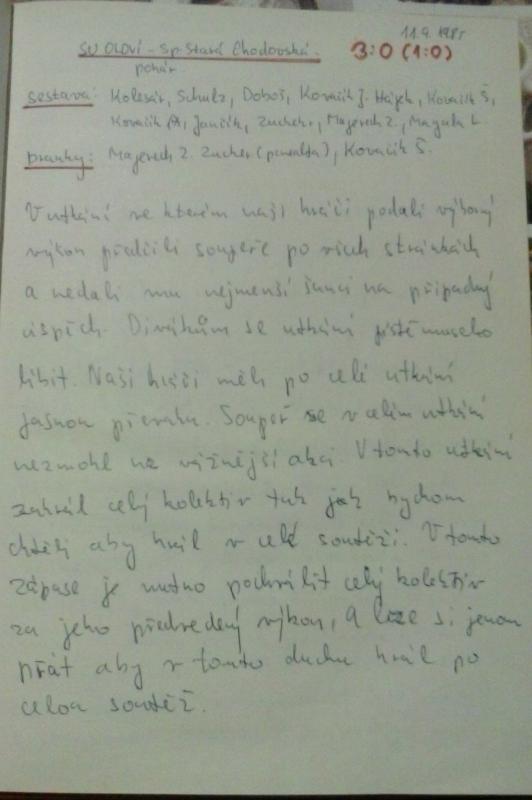 11.9. 1985
SU OLOVÍ - Sp. Stará Chodovská. 3:0 (1:0)
pohár.
sestava: Kolesár, Schulz, Doboš, Kovačik J. Hájek, Kovačik Š,
Kovačik A, Jančík, Zucker, Majerech Z., Magula L.
branky: Majerech Z. Zucker (penalta), Kovačik Š.
V utkání ve kterém naši hráči podali výborný
výkon předčili soupeře po všech stránkách
a nedali mu nejmenší šanci na případný
úspěch. Divákům se utkání jistě muselo
líbit. Naši hráči měli po celé utkání
jasnou převahu. Soupeř se v celém utkání
nezmohl na vážnější akci. V tomto utkání
zahrál celý kolektiv tak jak bychom
chtěli aby hrál v celé soutěži. V tomto
zápase je nutno pochválit celý kolektiv
za jeho předvedený výkon, a lze si jenom
přát aby v tomto duchu hrál po
celou soutěž.